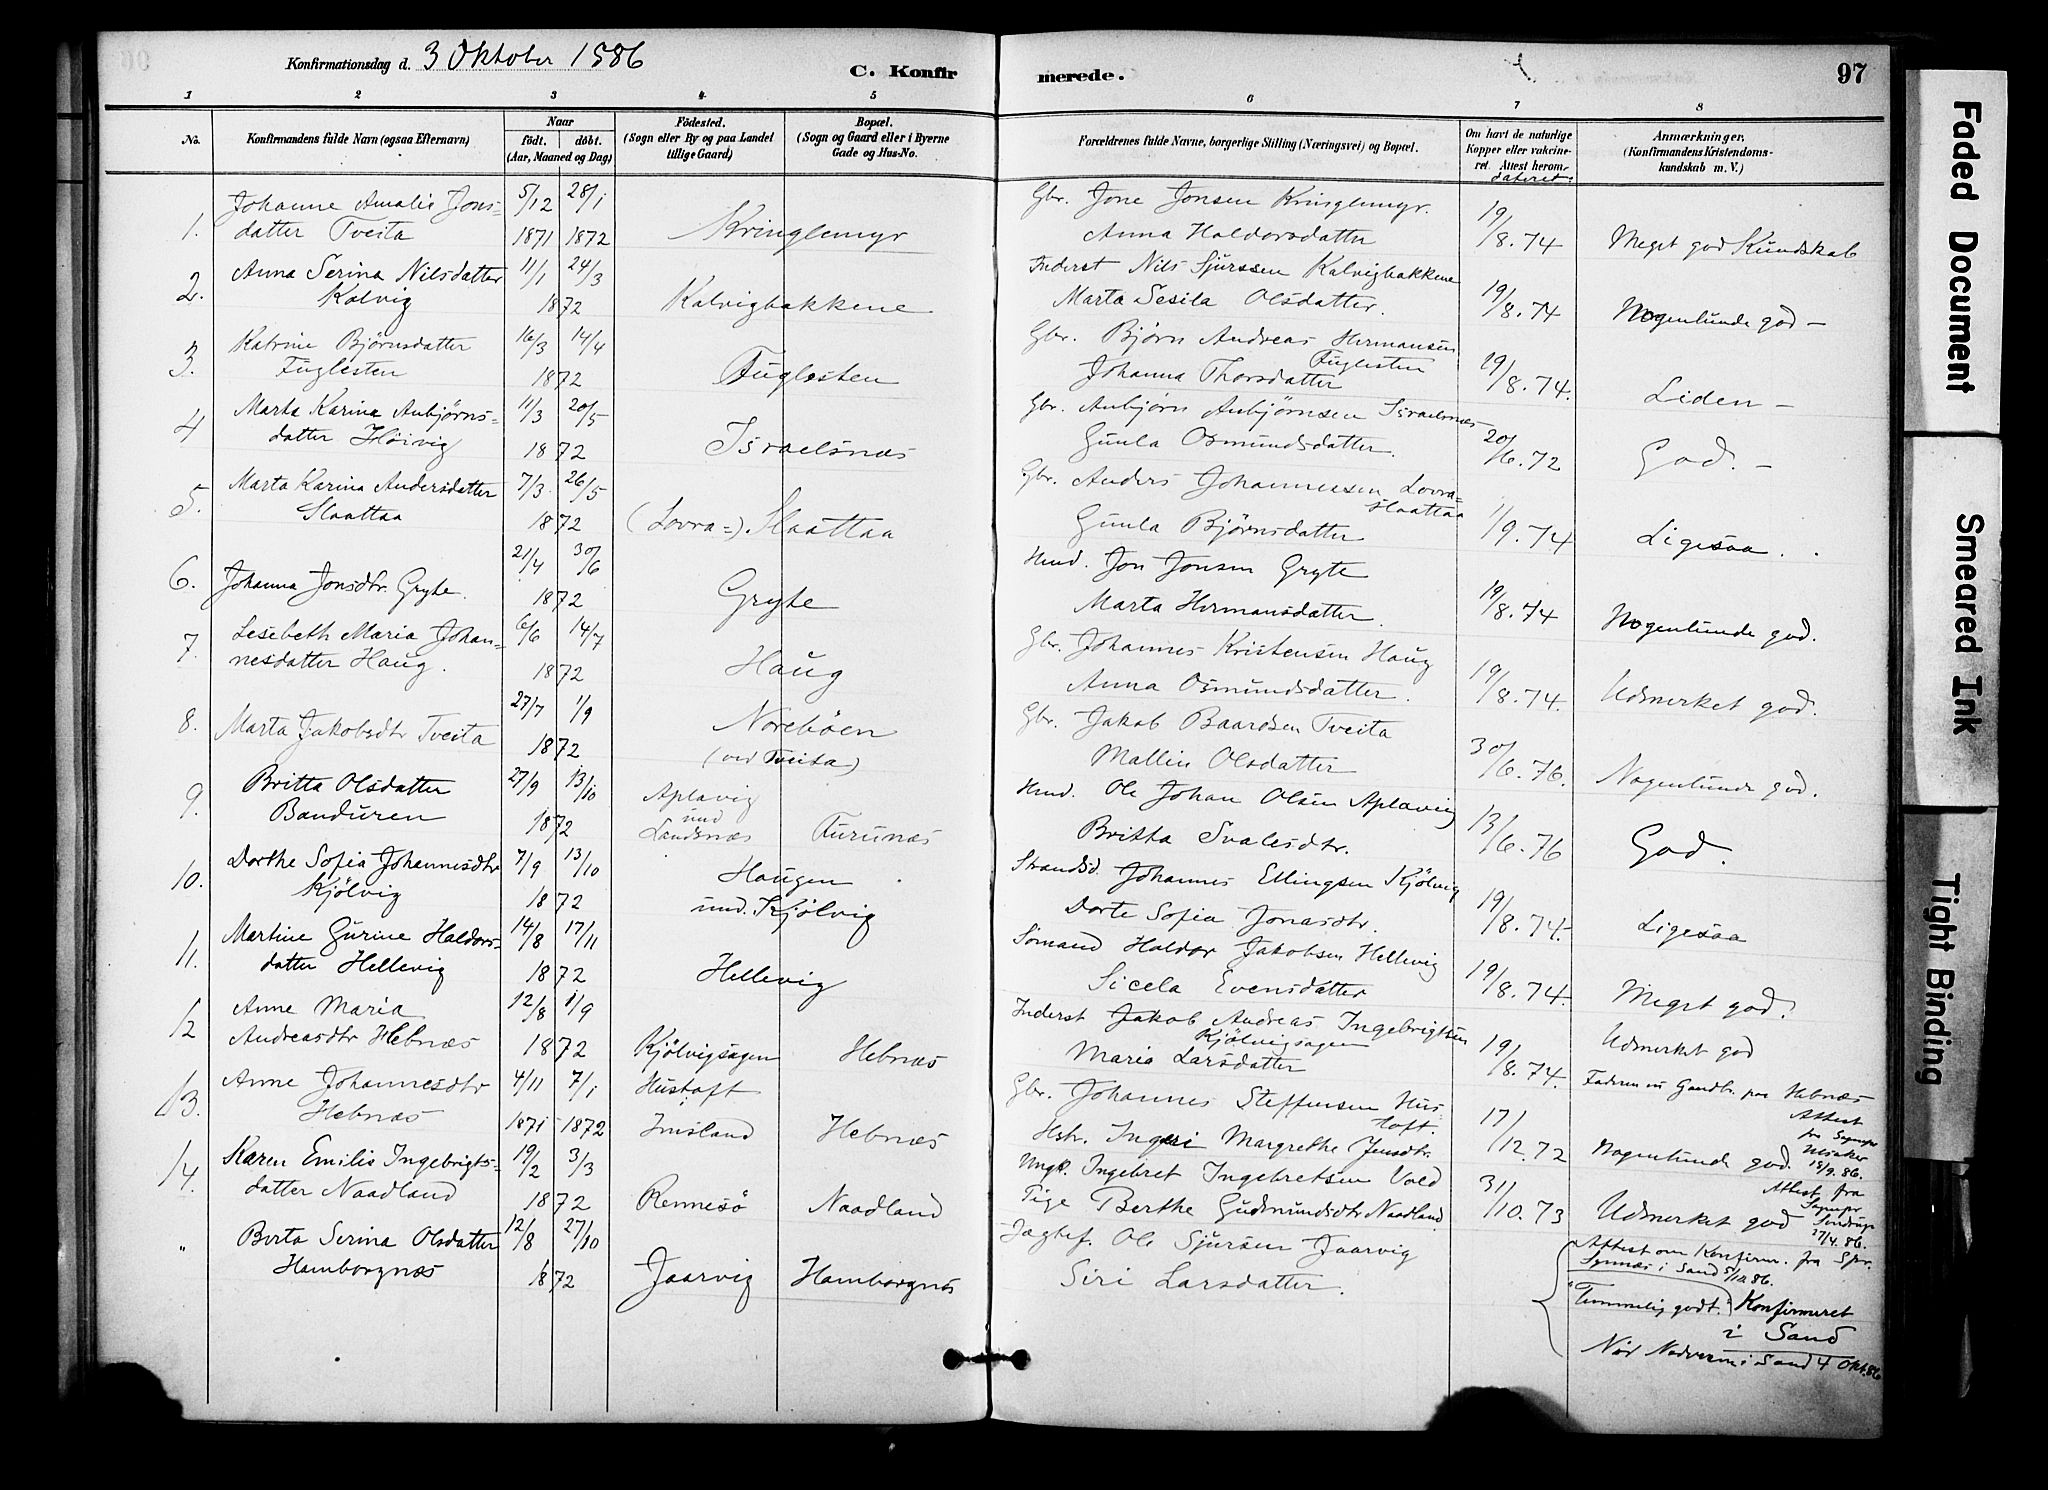 Konfirmationsdag d. 3 Oktober 1886
C. Konfirmerede.
97
1 2 3 4 5 6 7 8
No.
Konfirmandens fulde Navn (ogsaa Efternavn)
Naar
født. døbt.
(Aar, Maaned og Dag)
Fødested.
(Sogn eller By og paa Landet
tillige Gaard)
Bopæl.
(Sogn og Gaard eller i Byerne
Gade og Hus-No.
Forældrenes fulde Navne, borgerlige Stilling (Næringsvei) og Bopæl.
Om havt de naturlige
Kopper eller vakcine-
ret. Attest herom
dateret:
Anmærkninger.
(Konfirmandens Kristendoms-
kundskab m. V.)
Johanne Amalie Jons- 5/12 28/1 Gbr. Jone Jonsen Kringlemyr. 19/8.74
1. datter Tveita 1871 1872 Kringlemyr Anna Haldorsdatter Meget god Kundskab
Anna Serina Nilsdatter 11/1 24/3 Inderst Nils Sjursen Kalvigbakkene 19/8.74
2. Kalvig 1872 Kalvigbakkene Marta Sesila Olsdatter. Nogenlunde god -
Katrine Bjørnsdatter 16/3 14/4 Gbr. Bjørn Andreas Hermansen
Fuglesten
3. Fuglesten 1872 Fuglesten Johanna Thorsdatter 19/8.74. Liden -
Marta Karina Anbjørns- 11/3 20/5 Gbr. Anbjørn Anbjørnsen Israelsnæs
4 datter Høivig 1872 Israelsnæs Gunla Osmundsdatter. 20/6.72 God. -
Marta Karina Andersdatter 7/3 26/5 Gbr. Anders Johannessen Lovra-
Slaattaa
5. Slaattaa 1872 (Lovra-) Slaattaa Gunla Bjørnsdatter 1/9.74 Ligesaa.
21/4 30/6 Hmd. Jon Jonsen Gryte
6. Johanna Jonsdtr. Gryte. 1872 Gryte Marta Hermansdatter. 19/8.74 Nogenlunde god.
Lesebeth Maria Johan- 6/6 14/7 Gbr. Johannes Kristensen Haug
7. nesdatter Haug. 1872 Haug Anna Osmundsdatter. 19/8.74. Udmerket god.
27/7 1/9 Norebøen Gbr. Jakob Baardsen Tveita
8. Marta Jakobsdtr Tveita 1872 (ved Tveita) Mallin Olsdatter 30/6.76. Nogenlunde god.
Britta Olsdatter 27/9 13/10 Aplavig Hmd. Ole Johan Olsen Aplavig
und
9. Banduren 1872 Landsnæs Furunæs Britta Svalesdtr. 13/6.76 God.
Dorthe Sofia Johannesdtr 7/9 13/10 Haugen Strandsd. Johannes Ellingsen Kjølvig
10. Kjølvig 1872 und. Kjølvig Dorte Sofia Jonasdtr. 19/8.74. Ligesaa
Martine Gurine Haldors- 14/8 17/11 Sømand Haldor Jakobsen Hellevig
11. datter Hellevig 1872 Hellevig Sicela Evensdatter 19/8.74. Meget god.
Anne Maria 12/8 1/9 Inderst Jakob Andreas Ingebrigtsen
Kjølvigsagen
12 Andreasdtr Hebnæs 1872 Kjølvigsagen Hebnæs Maria Larsdatter 19/8.74. Udmerket god
Anne Johannesdtr 4/11 7/1 Hustoft Gbr. Johannes Steffensen Hus-
toft. Gaardbr. paa Hebnæs
13. Hebnæs 1871 - 1872 Imsland Hebnæs Hstr. Ingeri Margrethe Jensdtr. 17/12.72 Nogenlunde god. Attest
fra Sognepr
18/9.86.
Karen Emilie Ingebrigts- 19/2 3/3 Ungk. Ingebret Ingebretsen Vold
14. datter Naadland 1872 Rennesø Naadland Pige Berthe Gudmundsdtr Naadland 31/10.73 Udmerket god Attest fra
Sognepr
27/4.86.
" Berta Serina Olsdatter 12/8 27/10 Ole Sjursen Jaarvig
Hamborgnæs 1872 Jaarvig Hamborgnæs Siri Larsdatter.
Attest om Konfirm. fra Spr.
i Sand 5/10.86.
"Temmelig godt." Konfirmeret
i Sand
i Sand 4 Okt. 86
Faded Document
Smeared Ink
Tight Binding